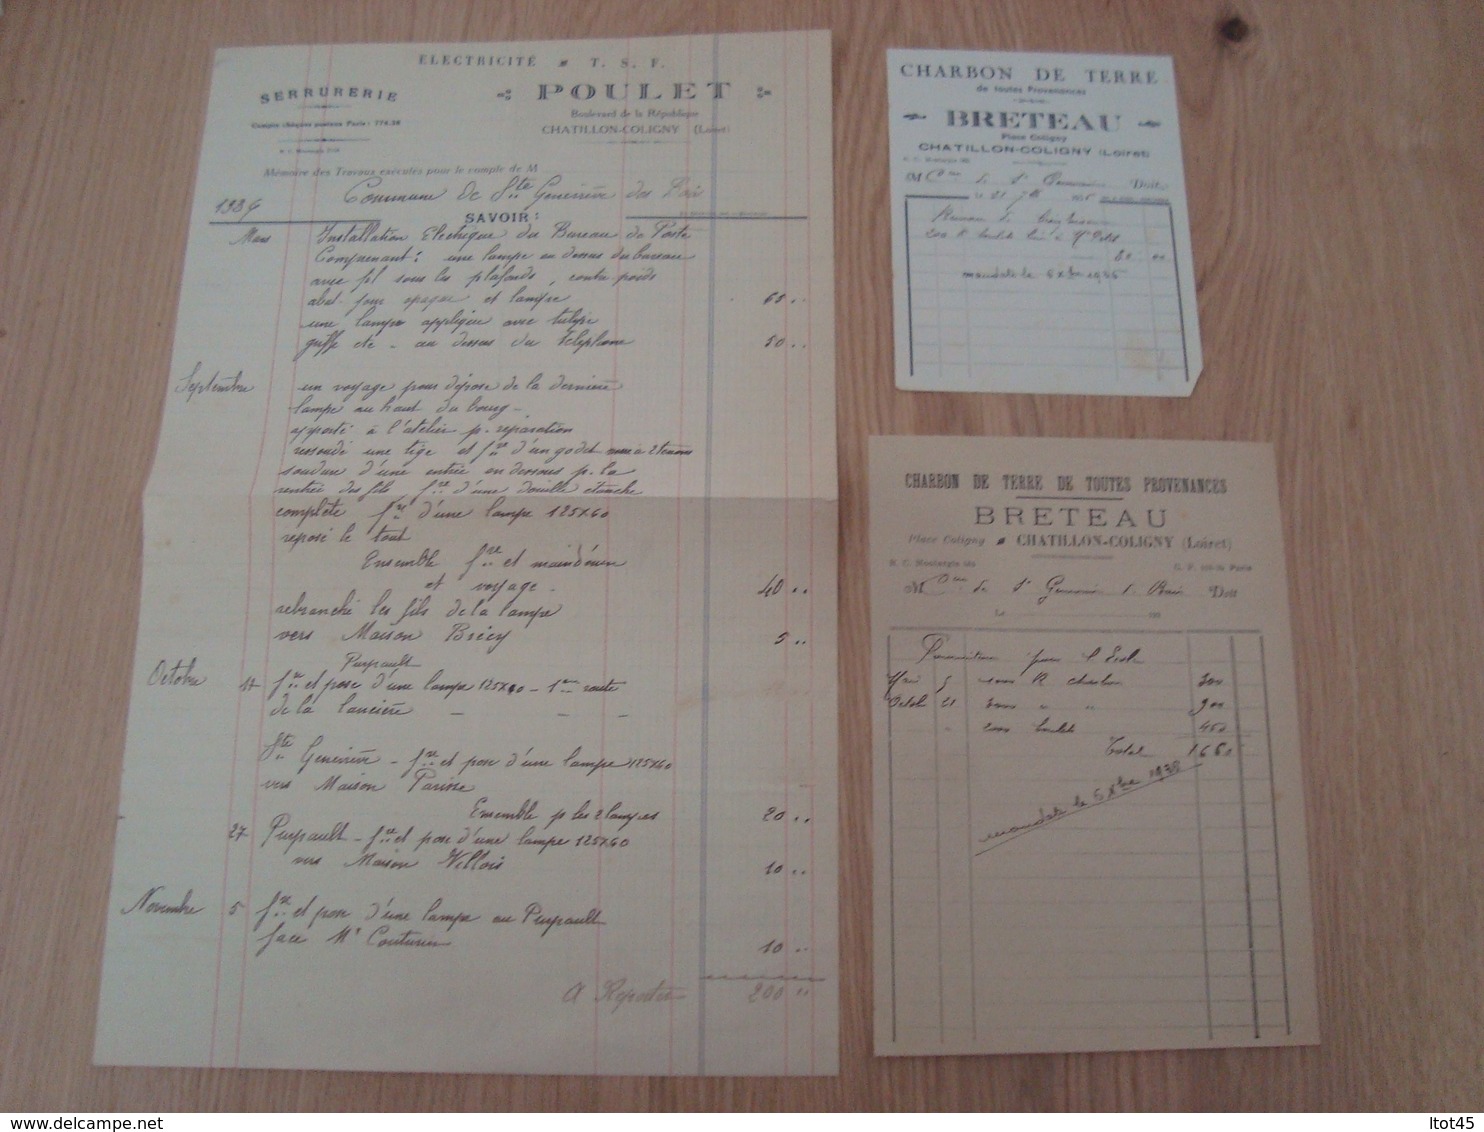 ELECTRICITÉ T. S. F.
SERRURERIE
POULET
Compte chèques postaux Paris : 774.38
Boulevard de la République
CHATILLON-COLIGNY (Loiret)
Mémoire des Travaux exécutés pour le compte de M
Commune de Ste Geneviève des Bois
193
SAVOIR :
Mars Installation Electrique du Bureau de Poste
Comprenant : une lampe en dessus du bureau
avec fil sous les plafonds, contre poids
abat-jour opaque et lampe 65 ..
une lampe applique avec tulipe
griffe etc - au dessus du Téléphone 50 ..
Septembre un voyage pour dépose de la dernière
lampe au haut du bourg -
apporté à l'atelier p. réparation
ressoudé une tige et fre d'un godet à 2 tenons
soudure d'une entrée en dessous p. la
rentrée des fils fre d'une douille étanche
complète fre d'une lampe 125x60
reposé le tout
Ensemble fre et main d'œuvre
et voyage - 40 ..
rebranché les fils de la lampe
vers Maison Brécy 5 ..
Puyrault
Octobre fre et pose d'une lampe 125x60 - route
de la
Ste Geneviève - fre et pose d'une lampe 125x60
vers Maison Parisse
Ensemble p les 2 lampes 20 ..
27 Puyrault - fre et pose d'une lampe 125x60
vers Maison Villois 10 ..
Novembre 5 fre et pose d'une lampe au Puyrault
face Mr Couturier 10 ..
A Reporter 200 ..
CHARBON DE TERRE
de toutes Provenances
BRETEAU
Place Coligny
CHATILLON-COLIGNY (Loiret)
R. C. Montargis
M Cne de St Geneviève Doit
200 K boulets
mandaté le 5 Xbre 193
CHARBON DE TERRE DE TOUTES PROVENANCES
BRETEAU
Place Coligny CHATILLON-COLIGNY (Loiret)
R. C. Montargis
M Cne de St Geneviève d. Bois Doit
Le 193
pour l'Ecole
1000 K charbon 300
Octob 21 3000 " " 900
boulets 450
Total 1.650
mandaté le 5 Xbre 1938
Itot45